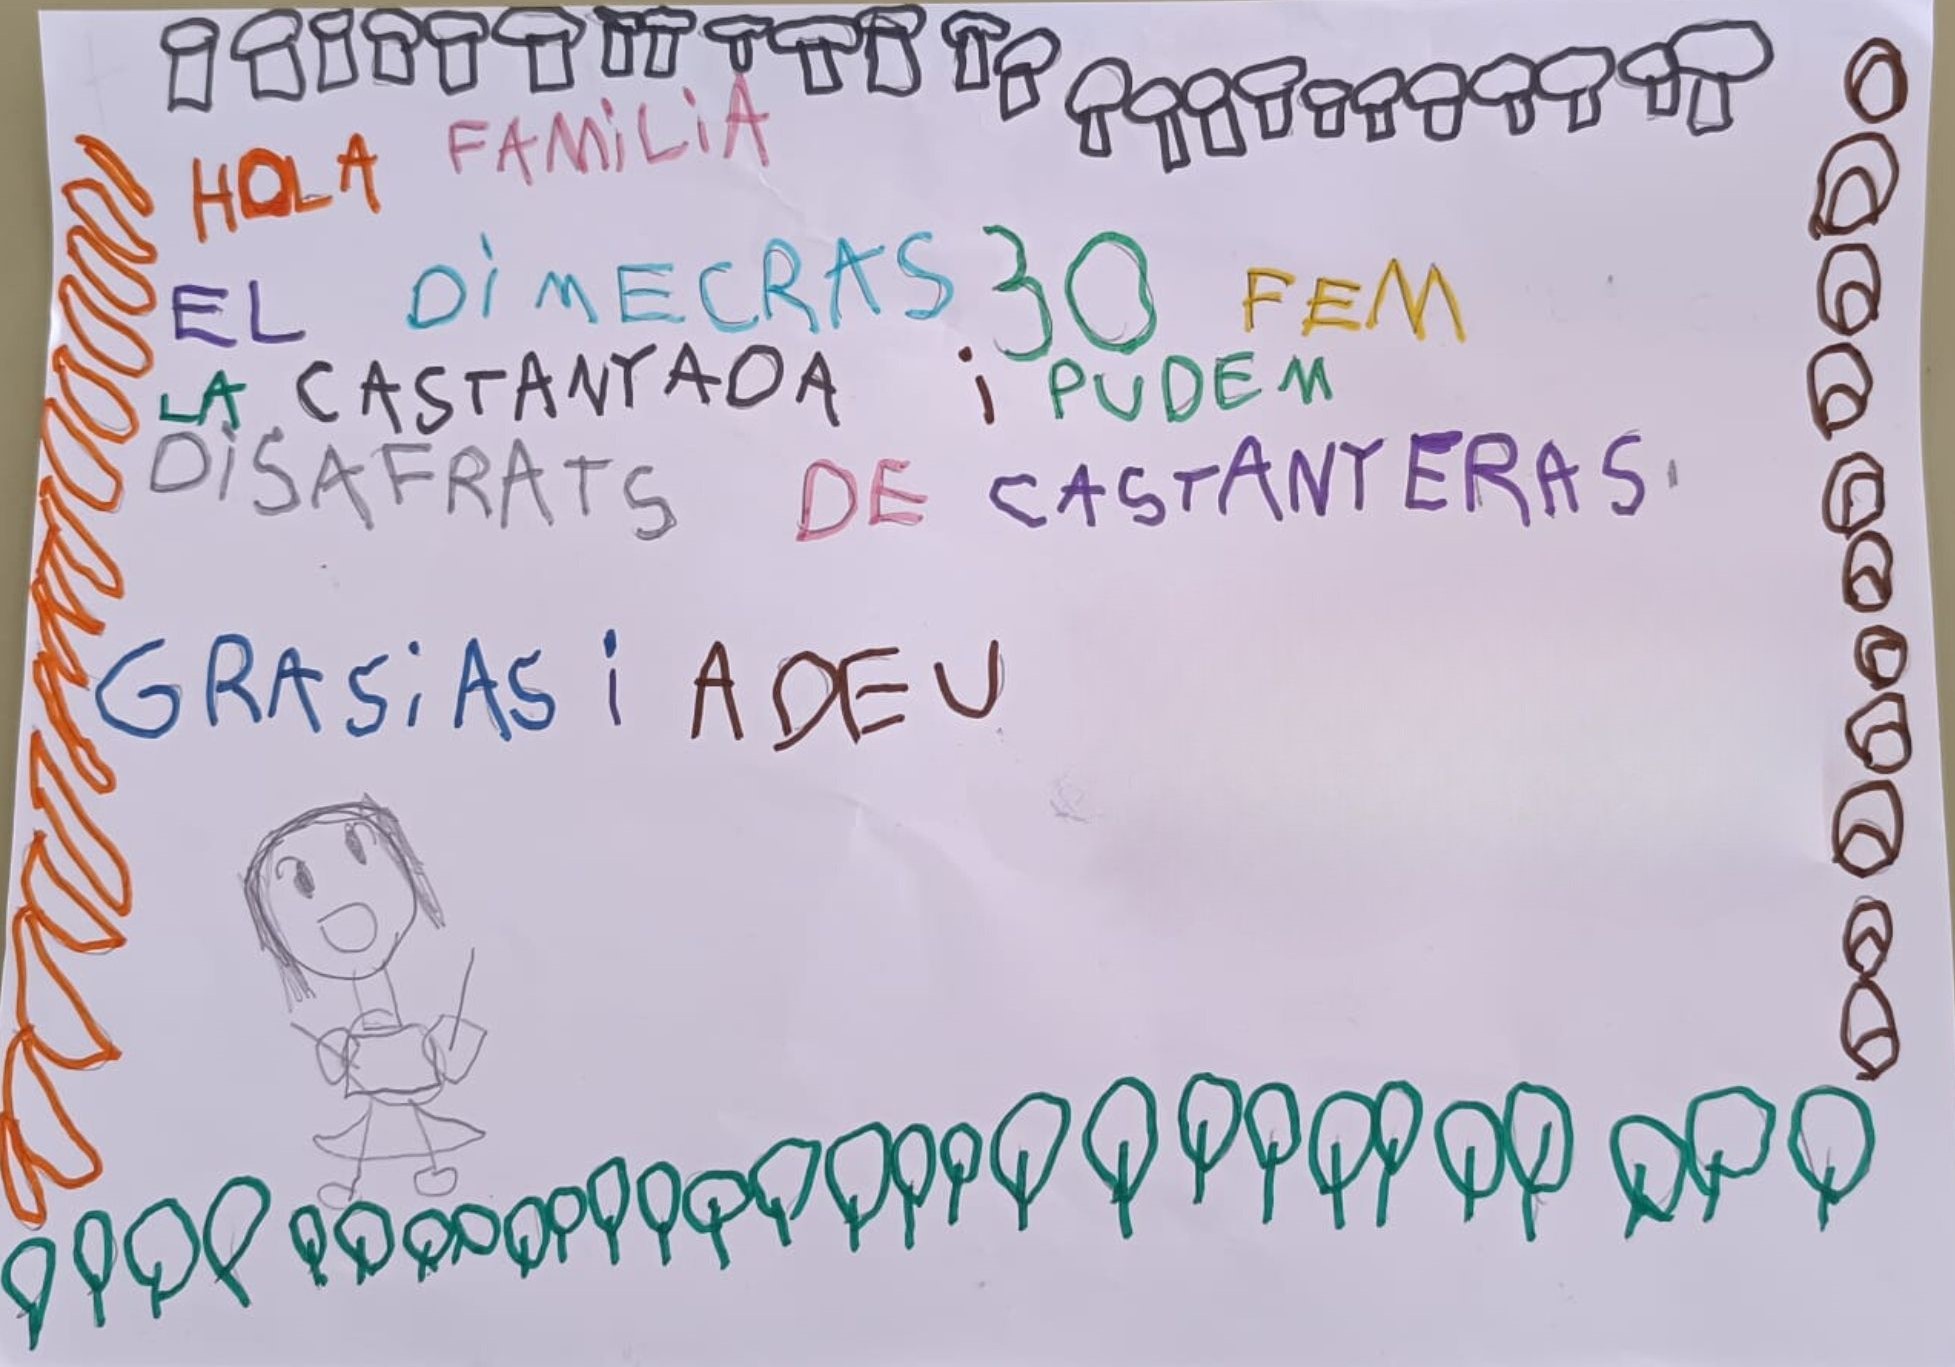 HOLA FAMiLiA
EL DiMECRAS 30 FEM
LA CASTANYADA i PUDEM
DiSAFRATS DE CASTANYERAS.
GRASiAS i ADEU